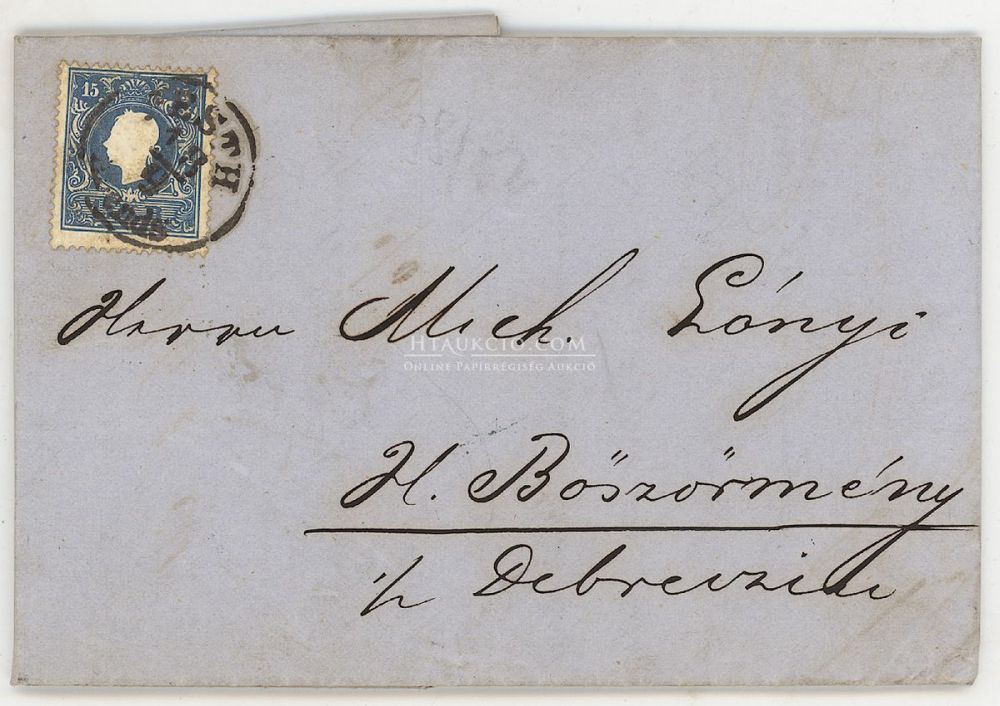 15
PESTH
Herrn Mich. Lónyi
HTAUKCIO.COM
ONLINE PAPÍRRÉGISÉG AUKCIÓ
H. Böszörmény
Debreczin